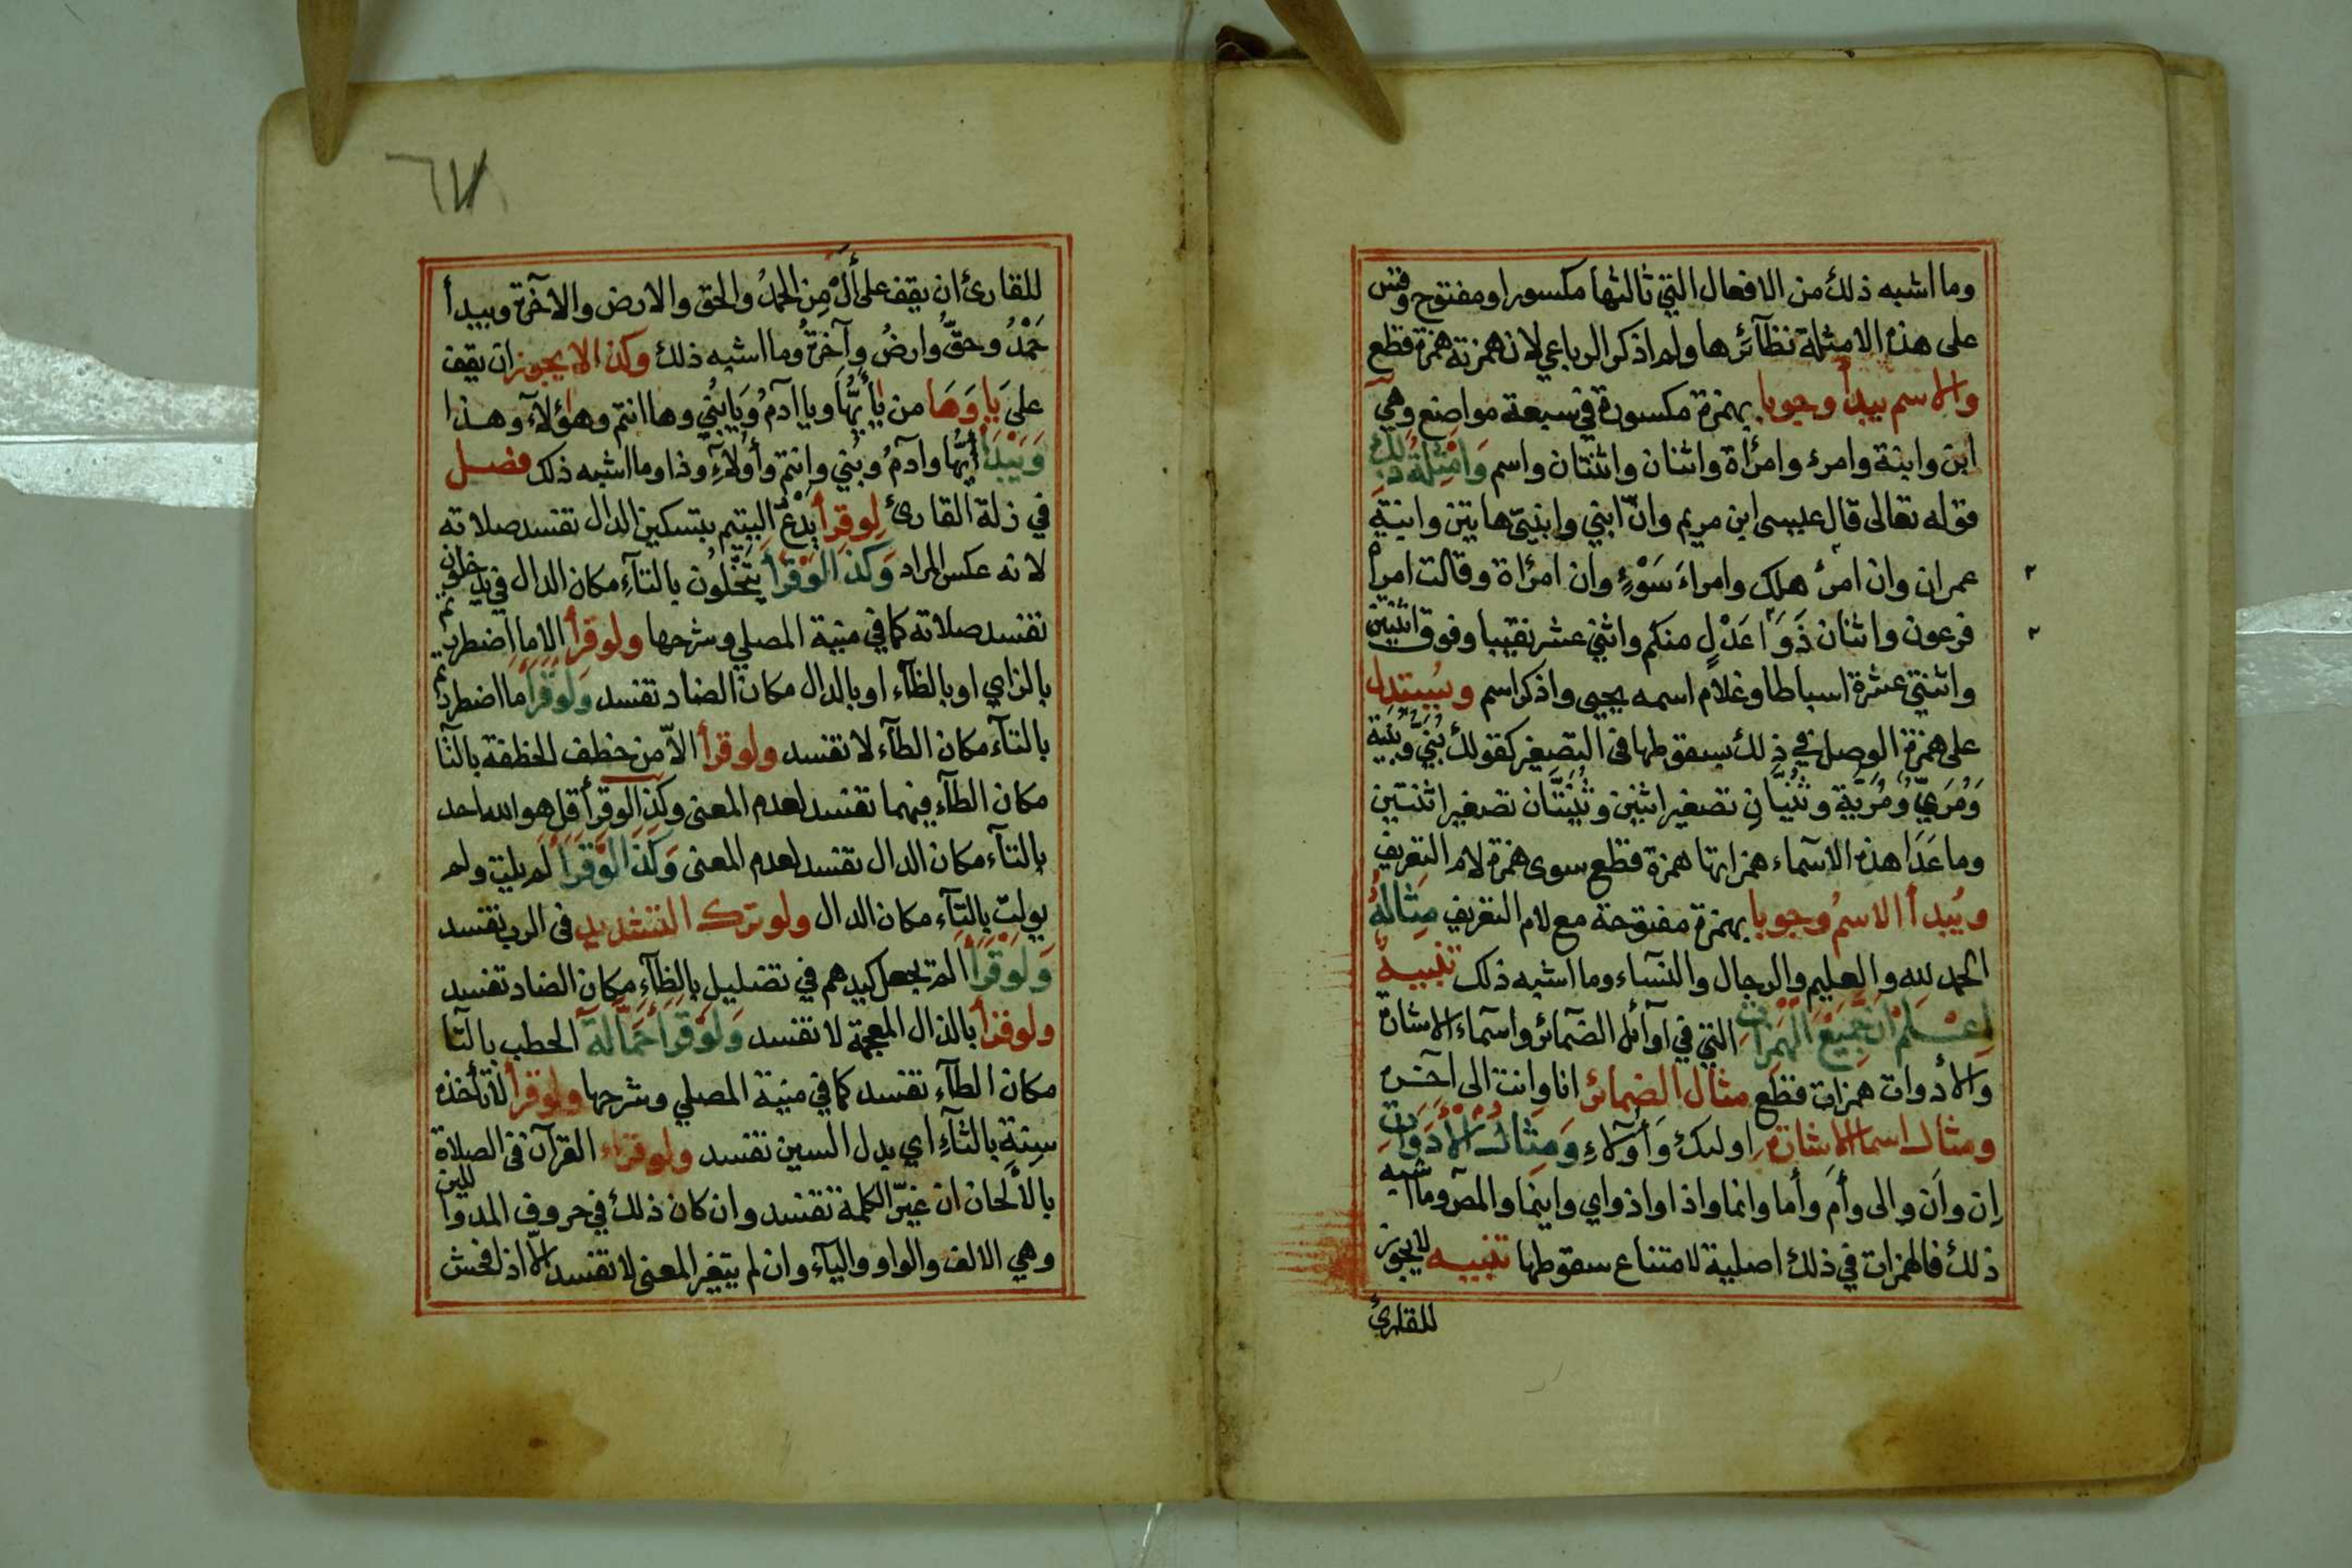 وما اشبه ذلك من الافعال التي ثالثها مكسور او مفتوح وقس
على هذه الامثلة نظآئرها ولم اذكر الرباعي لان همزته همزة قطع
والاسم يبدأ وجوبا بهمزة مكسورة في سبعة مواضع وهي
ابن وابنة وامرء وامرأة واثنان واثنتان واسم وَامْثِلَةُ ذلك
قوله تعالى قال عيسى ابن مريم وانّ ابني وابنتيّ هاتين وابنةِ
عمران وان امرئ هلك وامراءَ سَوْءٍ وان امرأة وقالت امرأ
فرعون واثنان ذَوَا عَدْلٍ منكم واثني عشر نقيبا وفوق اثنتين
واثنتي عشرة اسباطا وغلام اسمه يحيى واذكر اسم ويُستدل
على همزة الوصل في ذلك بسقوطها في التصغير كقولك بُنَيّ وبُنَيَّة
وَمُرَيّ وَمُرَيَّة وثُنَيَّانِ تصغير اثنين وثُنَيَّتَان تصغير اثنتين
وما عَدَا هذه الاسماء همزاتها همزة قطع سوى همزة لام التعريف
ويُبدأ الاسمُ وجوبا بهمزة مفتوحة مع لام التعريف مِثَالُهُ
الحمد لله والعليم والرجال والنسآء وما اشبه ذلك تنبيه
اِعْلَمْ انّ جَمِيْعَ الْهَمَزَاتِ التي في اوآئل الضمائر واسماء الاشارة
والأدوات همزات قطع مثال الضمائر انا وانت الى اخره
ومثال اسما الاشارة اولىك وَأولاءِ وَمِثَالُ الْأَدَوَاتِ
اِن واَن والى وأَم وأما وانما واذا واذ واي واينما والمص وما اشبه
ذلك فالهمزات في ذلك اصلية لامتناع سقوطها تنبيه لا يجوز
للقارئ
للقارئ ان يقف على أَلْ مِن الحمدُ والحق والارض والاخرة ويبدأ
حَمْدُ وحقُّ وارضُ وآخرةُ وما اشبه ذلك وكذا لا يجوز ان يقف
على يَا وَهَا من يٰأَيُّهَا ويا ادمُ وَيَابُنَي وها انتم وهؤلآء وهذا
وَيَبْدَأُ أَيُّهَا وآدمُ وبُني وانتم وأُولآءِ وذا وما اشبه ذلك فصل
في زلة القارئ لو قرأ يَدْعُّ اليتيم بتسكين الدال تفسد صلاته
لانه عكس المراد وَكَذَا لَوْ قَرَأَ يَتْخُلُون بالتآءِ مكان الدال في يدخلون
تفسد صلاته كما في منية المصلي وشرحها ولو قرأ الا ما اضطررتم
بالزاي او بالظآء او بالدال مكان الضاد تفسد وَلَوْ قَرَأَ ما اضطررتم
بالتآء مكان الطآء لا تفسد ولو قرأ الاّ من خطف الخطفة بالتا
مكان الطآء فيهما تفسد لعدم المعنى وكذا لو قرأ قل هو الله احد
بالتآء مكان الدال تفسد لعدم المعنى وَكَذَا لَوْ قَرَأَ لم يلت ولم
يولت بالتآء مكان الدال ولو ترك التشديد في الرب تفسد
وَلَوْ قَرَأَ الم تجعل كيدهم في تضليل بالظآءِ مكان الضاد تفسد
ولو قرأ بالذال المعجمة لا تفسد وَلَوْ قَرَأَ حَمَّالَةَ الحطب بالتا
مكان الطآء تفسد كما في منية المصلي وشرحها ولو قرأ لا تأخذه
سنة بالثآءِ اي بدل السين تفسد ولو قراء القرآن في الصلاة
بالألحان ان غيّر الكلمة تفسد وان كان ذلك في حروف المد واللين
وهي الالف والواو واليآء وان لم يتغير المعنى لا تفسد الاّ اذا فحش